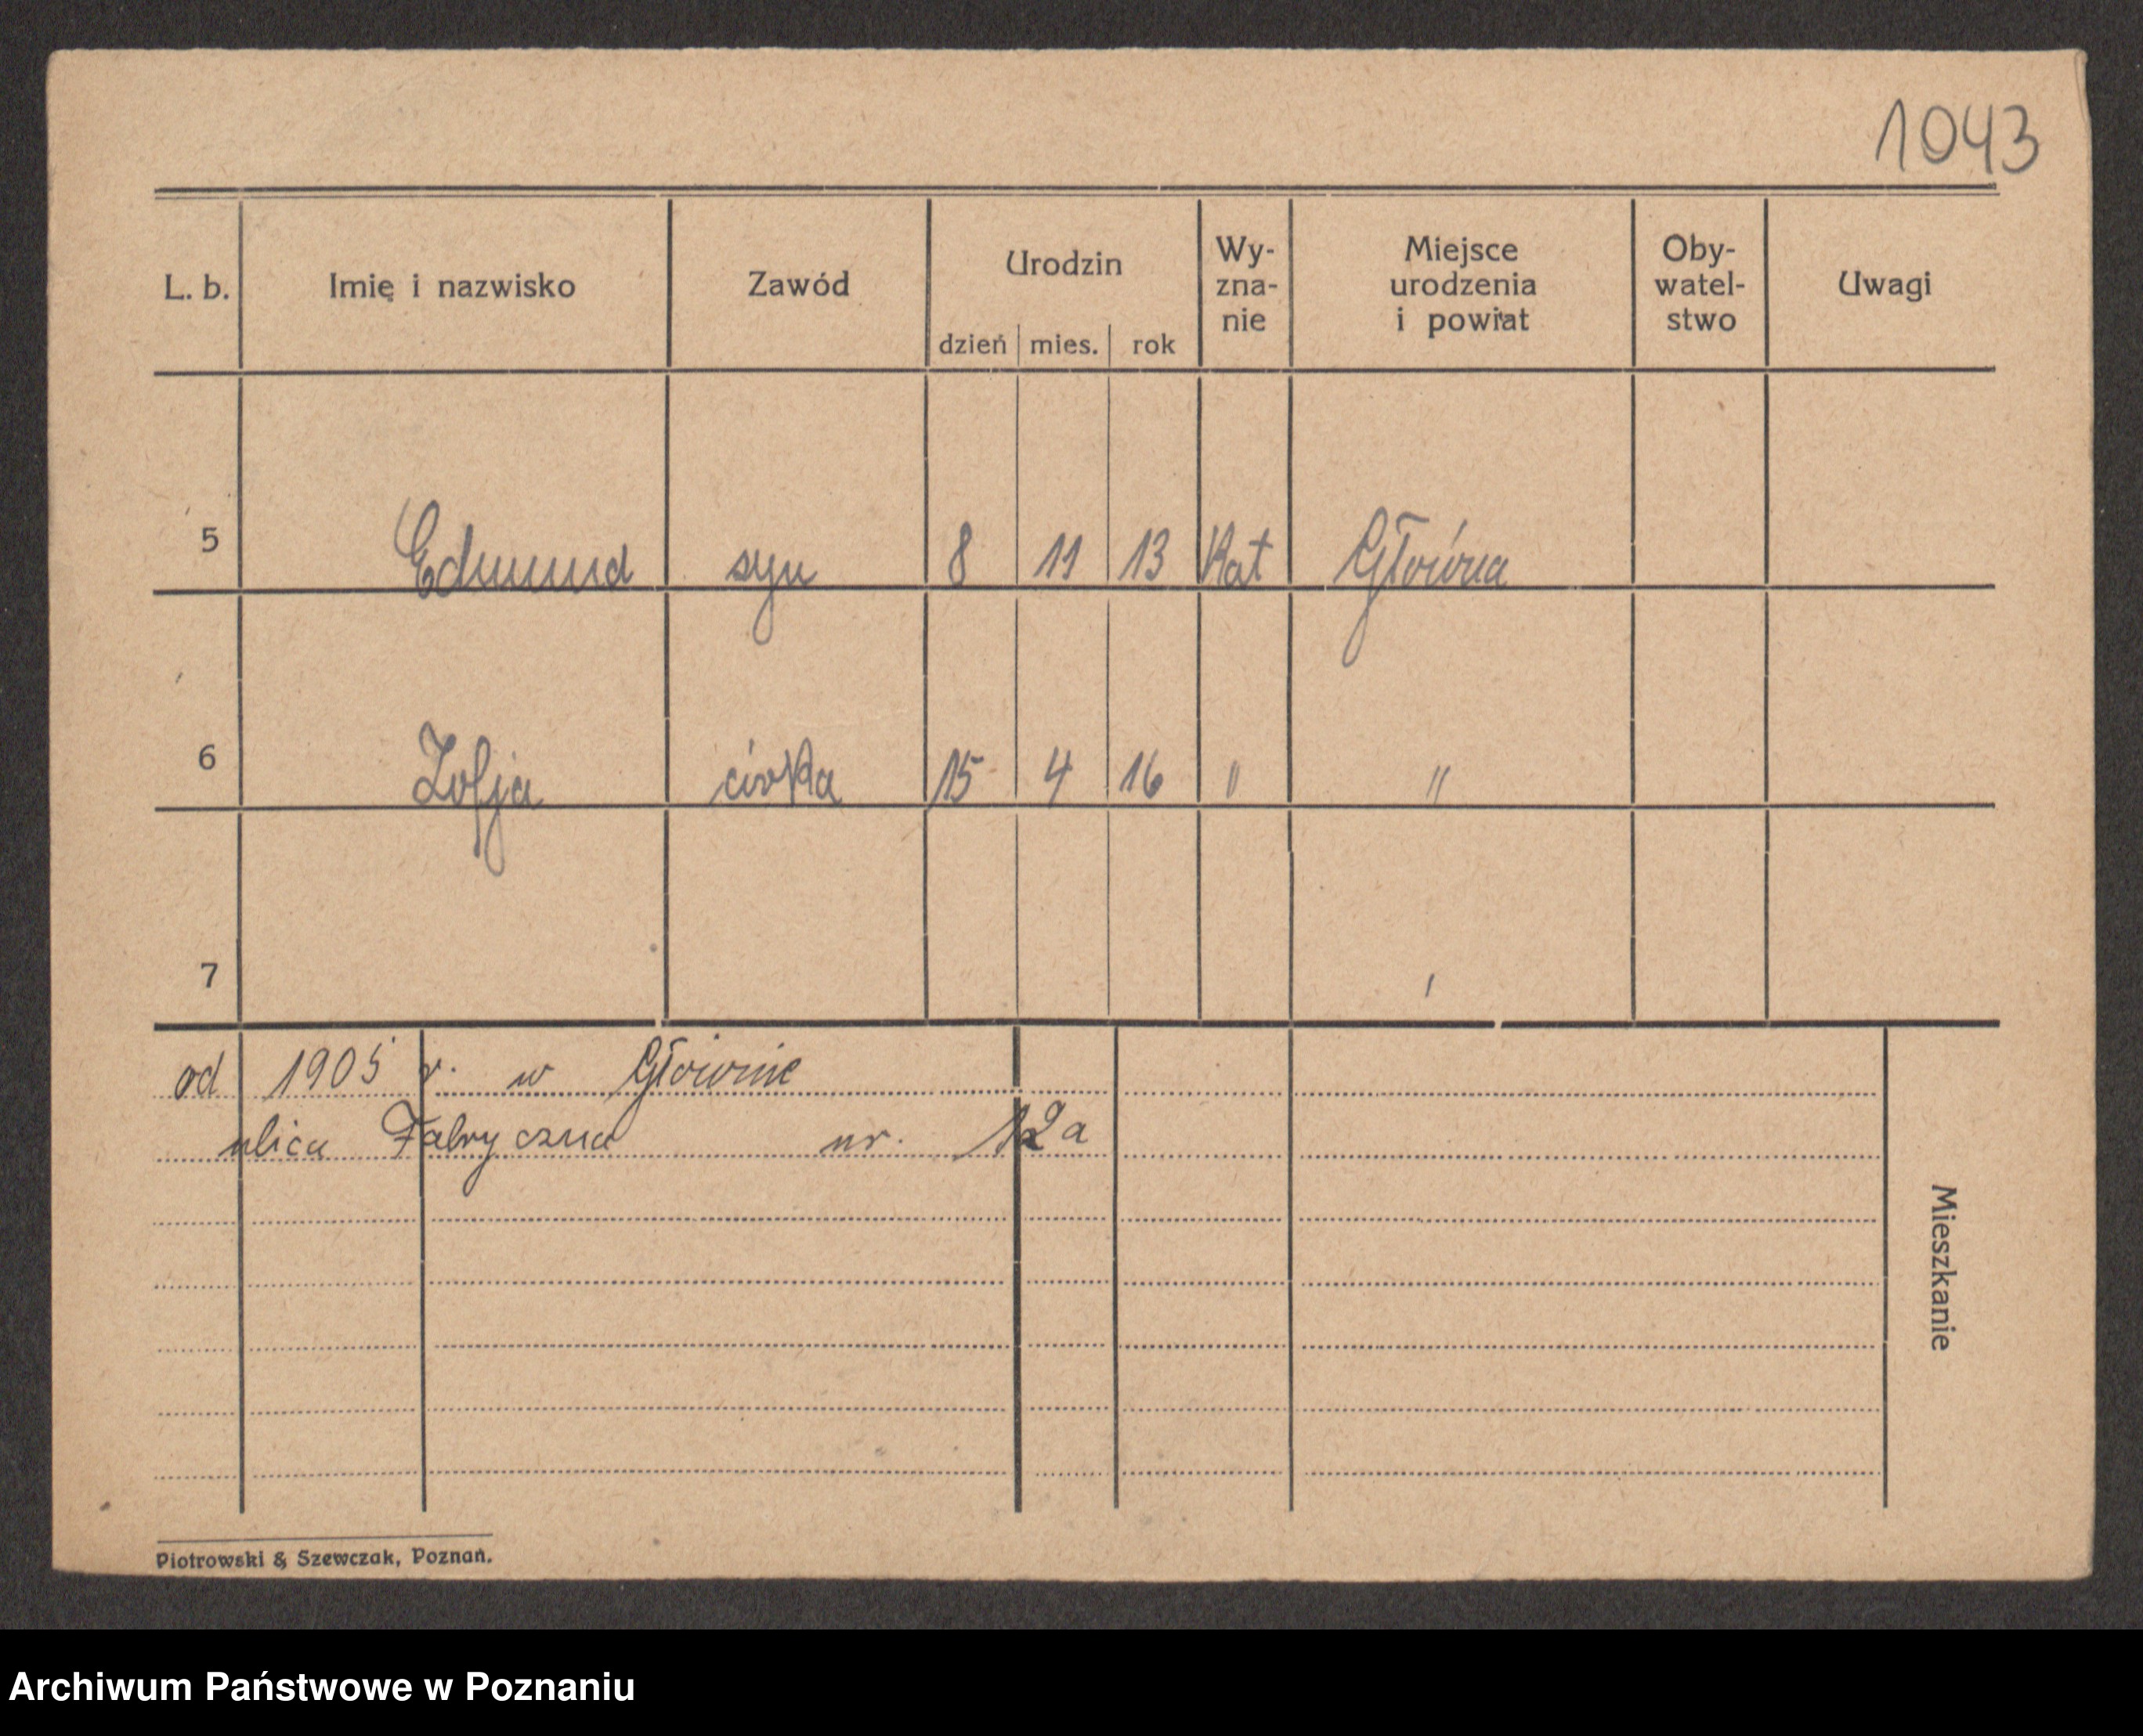 1043
L. b. Imię i nazwisko Zawód Urodzin dzień mies. rok Wy-zna-nie Miejsce urodzenia i powiat Oby-watel-stwo Uwagi
5 Edmund syn 8 11 13 Kat Główna
6 Zofja córka 15 4 16 " "
7
od 1905 r. w Głównie
ulica Fabryczna nr. 12a
Mieszkanie
Piotrowski & Szewczak, Poznań.
Archiwum Państwowe w Poznaniu